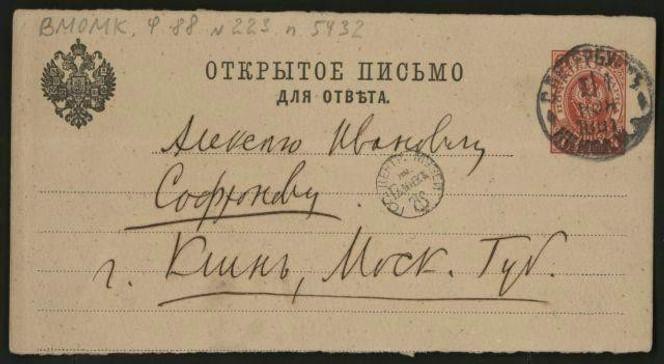 ВМОМК, Ф 88 № 223 п 5432
ОТКРЫТОЕ ПИСЬМО
ДЛЯ ОТВѢТА.
С.ПЕТЕРБУРГЪ
Алексѣю Ивановичу
Софронову
г. Клинъ, Моск. Губ.